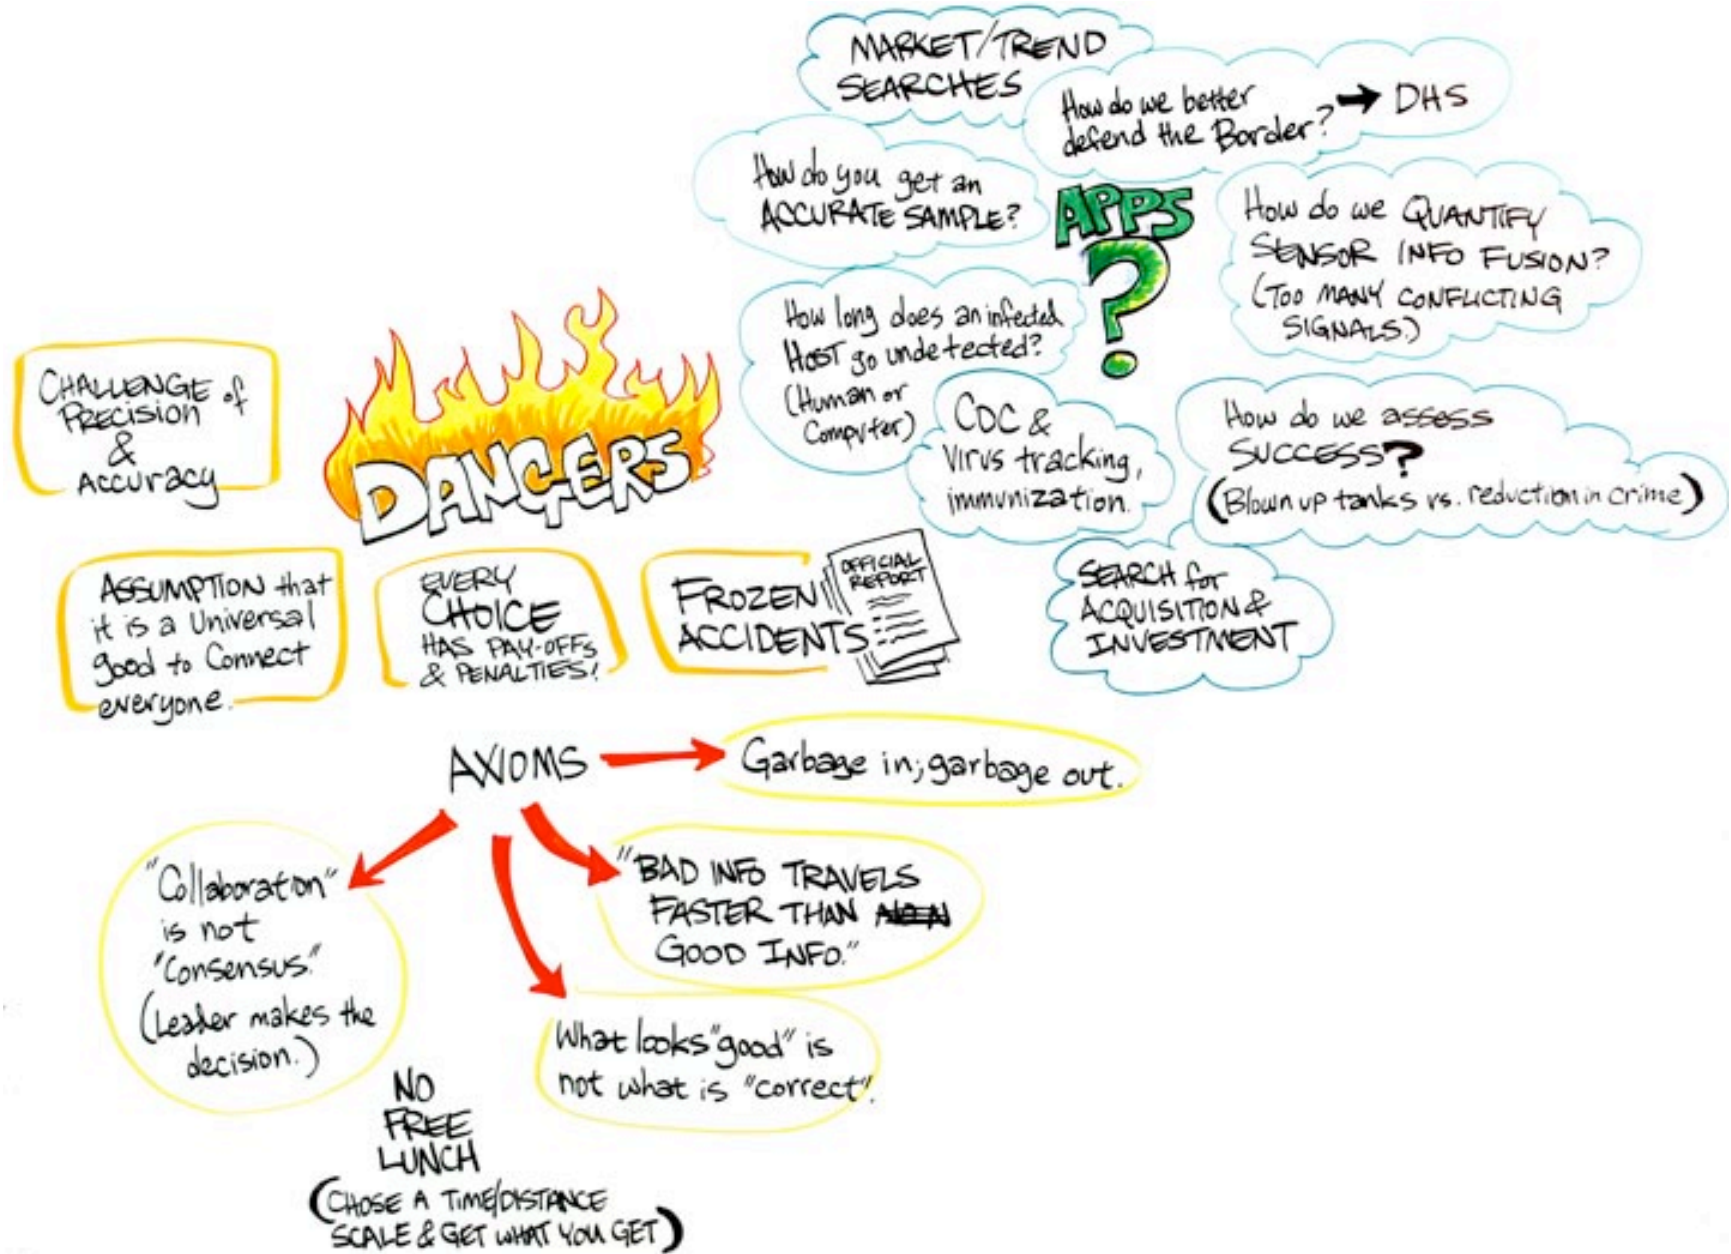 MARKET/TREND
SEARCHES
How do we better
defend the Border? → DHS
How do you get an
ACCURATE SAMPLE?
APPS
?
How do we QUANTIFY
SENSOR INFO FUSION?
(TOO MANY CONFLICTING
SIGNALS.)
How long does an infected
HOST go undetected?
(Human or
Computer)
CDC &
Virus tracking,
immunization.
How do we assess
SUCCESS?
(Blown up tanks vs. reduction in crime)
SEARCH for
ACQUISITION &
INVESTMENT
DANGERS
CHALLENGE of
PRECISION
&
ACCURACY
ASSUMPTION that
it is a Universal
good to Connect
everyone.
EVERY
CHOICE
HAS PAY-OFFS
& PENALTIES!
FROZEN
ACCIDENTS
OFFICIAL
REPORT
AXIOMS
Garbage in; garbage out.
"Collaboration"
is not
"Consensus."
(Leader makes the
decision.)
"BAD INFO TRAVELS
FASTER THAN
GOOD INFO."
What looks "good" is
not what is "correct".
NO
FREE
LUNCH
(CHOSE A TIME/DISTANCE
SCALE & GET WHAT YOU GET)